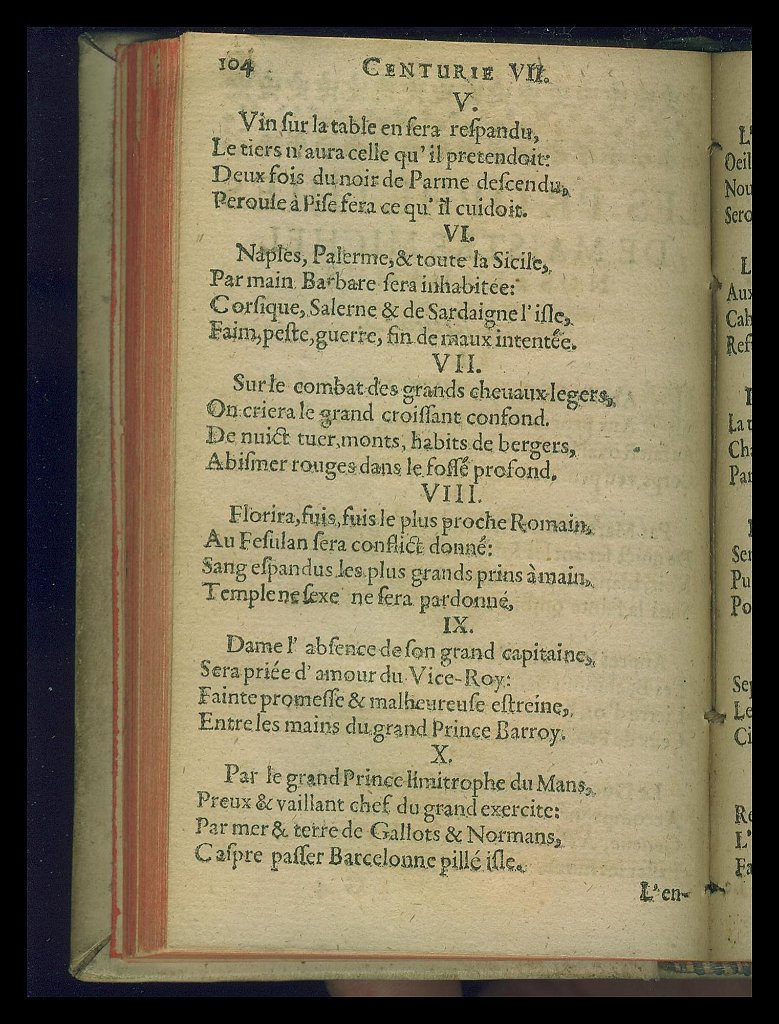 104 CENTURIE VII.
V.
Vin ſur la table en ſera reſpandu,
Le tiers n'aura celle qu'il pretendoit:
Deux fois du noir de Parme deſcendu,
Perouſe à Piſe fera ce qu'il cuidoit.
VI.
Naples, Palerme, & toute la Sicile,
Par main Barbare ſera inhabitée:
Corſique, Salerne & de Sardaigne l'iſle,
Faim, peſte, guerre, fin de maux intentée.
VII.
Sur le combat des grands cheuaux legers,
On criera le grand croiſſant confond.
De nuict tuer, monts, habits de bergers,
Abiſmer rouges dans le foſſé profond.
VIII.
Florira, fuis, fuis le plus proche Romain,
Au Feſulan ſera conflict donné:
Sang eſpandus les plus grands prins à main,
Temple ne ſexe ne ſera pardonné,
IX.
Dame l'abſence de ſon grand capitaine,
Sera priée d'amour du Vice-Roy:
Fainte promeſſe & malheureuſe eſtreine,
Entre les mains du grand Prince Barroy.
X.
Par le grand Prince limitrophe du Mans,
Preux & vaillant chef du grand exercite:
Par mer & terre de Gallots & Normans,
Caſpre paſſer Barcelonne pillé iſle.
L'en-
L'
Oeil
Nou
Sero
L
Aux
Cah
Ref
La t
Cha
Par
Ser
Pu
Po
Sep
Le
Ci
Re
L'
Fa